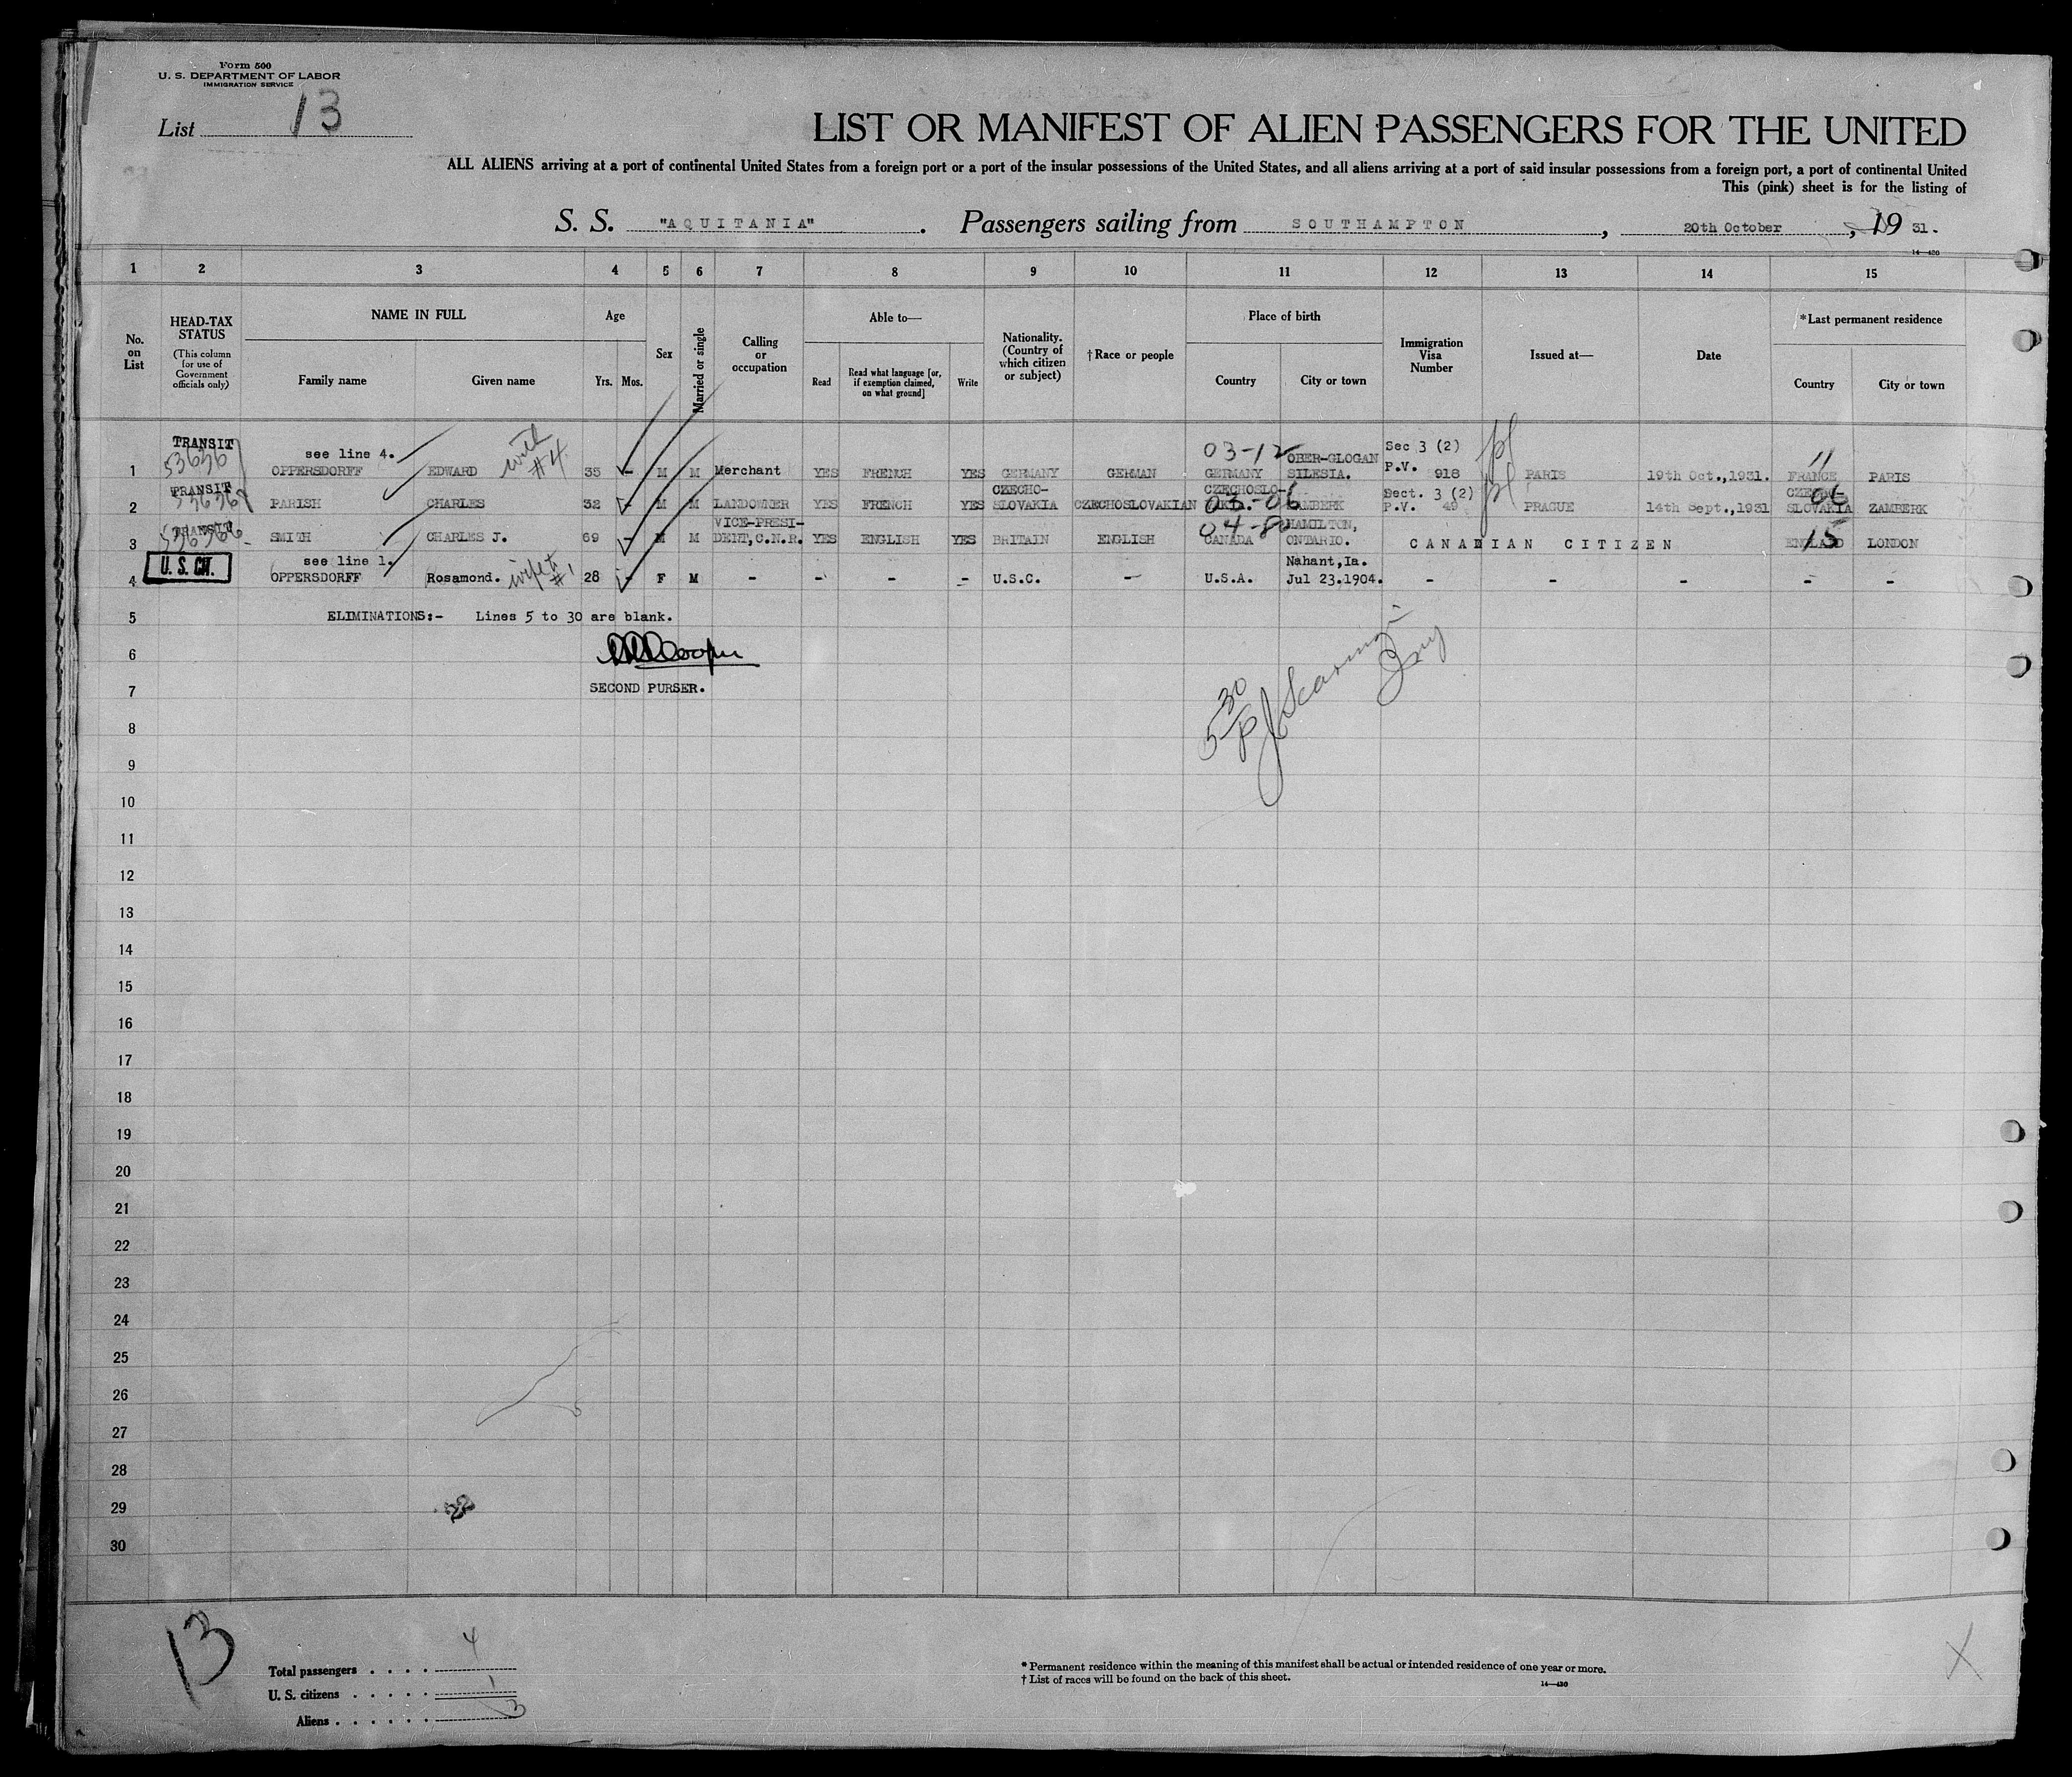 Form 500
U. S. DEPARTMENT OF LABOR
IMMIGRATION SERVICE
List 13
LIST OR MANIFEST OF ALIEN PASSENGERS FOR THE UNITED
ALL ALIENS arriving at a port of continental United States from a foreign port or a port of the insular possessions of the United States, and all aliens arriving at a port of said insular possessions from a foreign port, a port of continental United
This (pink) sheet is for the listing of
S. S. "AQUITANIA" . Passengers sailing from SOUTHAMPTON , 20th October , 19 31.
14—430
1 2 3 4 5 6 7 8 9 10 11 12 13 14 15
No. on List
HEAD-TAX STATUS (This column for use of Government officials only)
NAME IN FULL
Family name Given name
Age
Yrs. Mos.
Sex
Married or single
Calling or occupation
Able to—
Read
Read what language [or, if exemption claimed, on what ground]
Write
Nationality. (Country of which citizen or subject)
†Race or people
Place of birth
Country City or town
Immigration Visa Number
Issued at—
Date
*Last permanent residence
Country City or town
TRANSIT see line 4. with #4 03-12 OBER-GLOGAN Sec 3 (2) 11
1 OPPERSDORFF EDWARD 35 - M M Merchant YES FRENCH YES GERMANY GERMAN GERMANY SILESIA. P.V. 918 PARIS 19th Oct.,1931. FRANCE PARIS
TRANSIT CZECHO- CZECHOSLO- Sect. 3 (2) 06
2 PARISH CHARLES 32 - M M LANDOWNER YES FRENCH YES SLOVAKIA CZECHOSLOVAKIAN 03-06 ZAMBERK P.V. 49 PRAGUE 14th Sept.,1931 SLOVAKIA ZAMBERK
TRANSIT VICE-PRESI- 04-80 HAMILTON,
3 SMITH CHARLES J. 69 - M M DENT,C.N.R. YES ENGLISH YES BRITAIN ENGLISH CANADA ONTARIO. CANADIAN CITIZEN ENGLAND 15 LONDON
U. S. CIT. see line 1. wife to #1 Nahant,Ia.
4 OPPERSDORFF Rosamond. 28 - F M - - - - U.S.C. - U.S.A. Jul 23.1904. - - - - -
5 ELIMINATIONS:- Lines 5 to 30 are blank.
6
7 SECOND PURSER.
8
9
10
11
12
13
14
15
16
17
18
19
20
21
22
23
24
25
26
27
28
29
30
13
Total passengers . . . . 4
U. S. citizens . . . . . 1
Aliens . . . . . . 3
* Permanent residence within the meaning of this manifest shall be actual or intended residence of one year or more.
† List of races will be found on the back of this sheet.
14—430
X